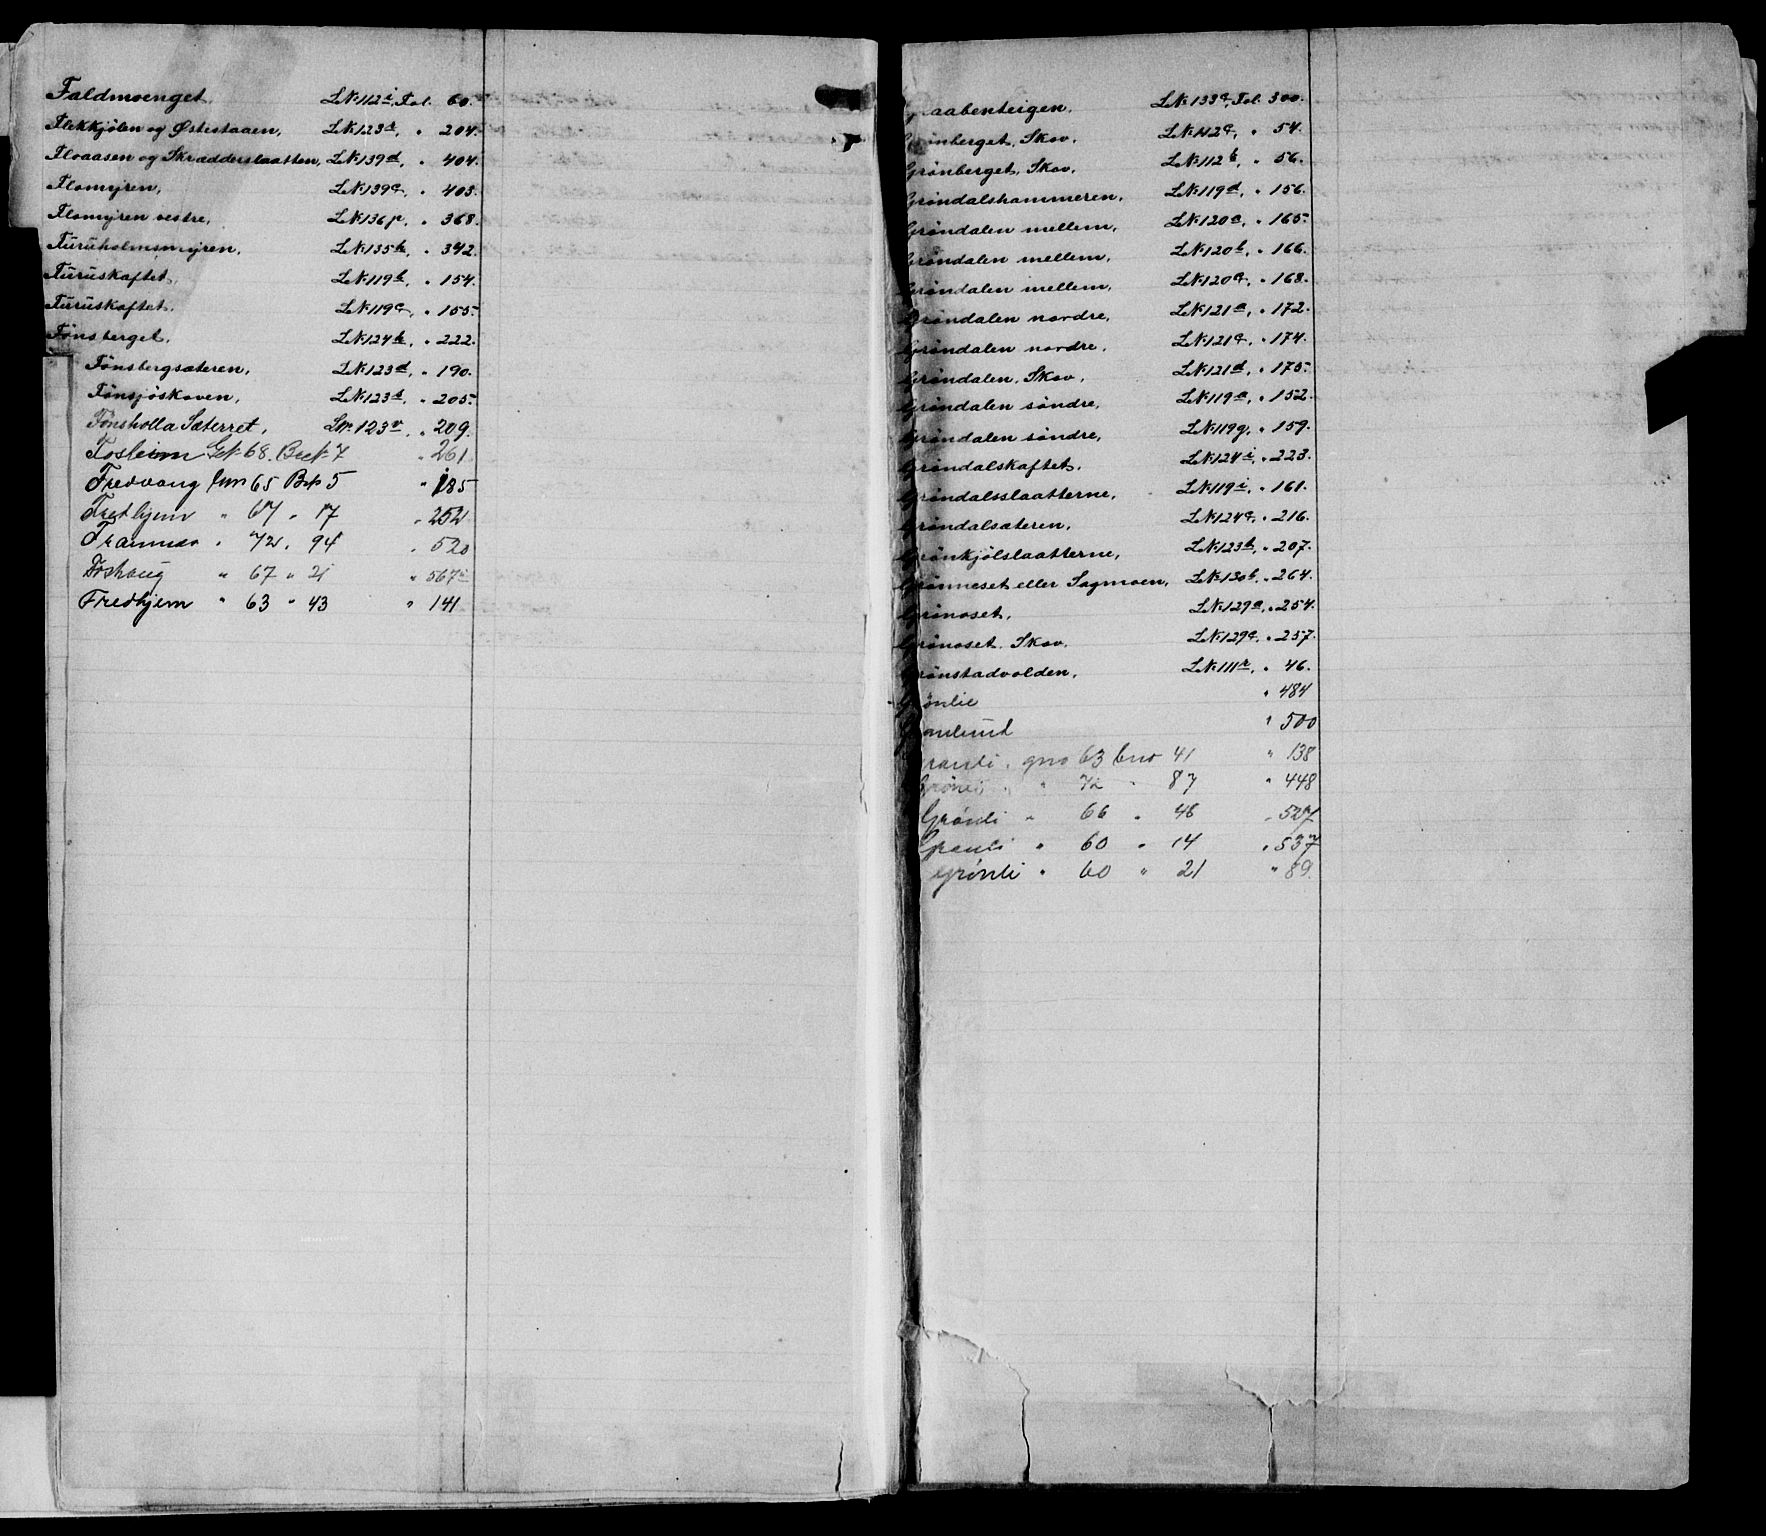 Faldmoenget, L.№112i, Fol. 60.
Flekkjölen og Østestaaen, L.№123s, " 204.
Floaasen og Skrædderslaatten, L.№139d, " 404.
Flomyren, L.№139c, " 403.
Flomyren vestre, L.№136p, " 368.
Furuholmsmyren, L.№135h, " 342.
Furuskaftet, L.№119b, " 154.
Furuskaftet, L.№119c, " 155.
Fönsberget, L.№124h, " 222.
Fönsbergsæteren, L.№123d, " 190.
Fönsjöskoven, L.№123t, " 205.
Fönsholla Sæterret, L№ 123v, " 209.
Fosheim G№ 68. B№ 7 " 261
Fredvang G№ 65 B№ 5 " 185
Fredhjem " 67 " 17 " 252
Framnæs " 72 " 94 " 520
Foshaug " 67 " 21 " 567
Fredhjem " 63 " 43 " 141
Graabenteigen, L.№133c, Fol. 300.
Grönberget, Skov, L.№112c, " 54.
Grönberget, Skov, L.№112b, " 56.
Gröndalshammeren, L.№119d, " 156.
Gröndalen mellem, L.№120a, " 165.
Gröndalen mellem, L.№120b, " 166.
Gröndalen mellem, L.№120c, " 168.
Gröndalen nordre, L.№121a, " 172.
Gröndalen nordre, L.№121c, " 174.
Gröndalen, Skov, L.№121d, " 175.
Gröndalen söndre, L.№119a, " 152.
Gröndalen söndre, L.№119g, " 159.
Gröndalskaftet, L.№124i, " 223.
Gröndalsslaatterne, L.№119i, " 161.
Gröndalsæteren, L.№124c, " 216.
Grönkjölslaatterne, L.№123h, " 207.
Grönneset eller Sagmoen, L.№130b, " 264.
Grönoset, L.№129a, " 254.
Grönoset, Skov, L.№129c, " 257.
Grönstadvolden, L.№111r, " 46.
Grönlie " 484
Granlund " 500
Granli " gno 63 bno 41 " 138
Grönli " " 72 " 87 " 448
Grønli " 66 " 48 " 527
Granli " 60 " 14 " 537
Grönli " 60 " 21 " 89.